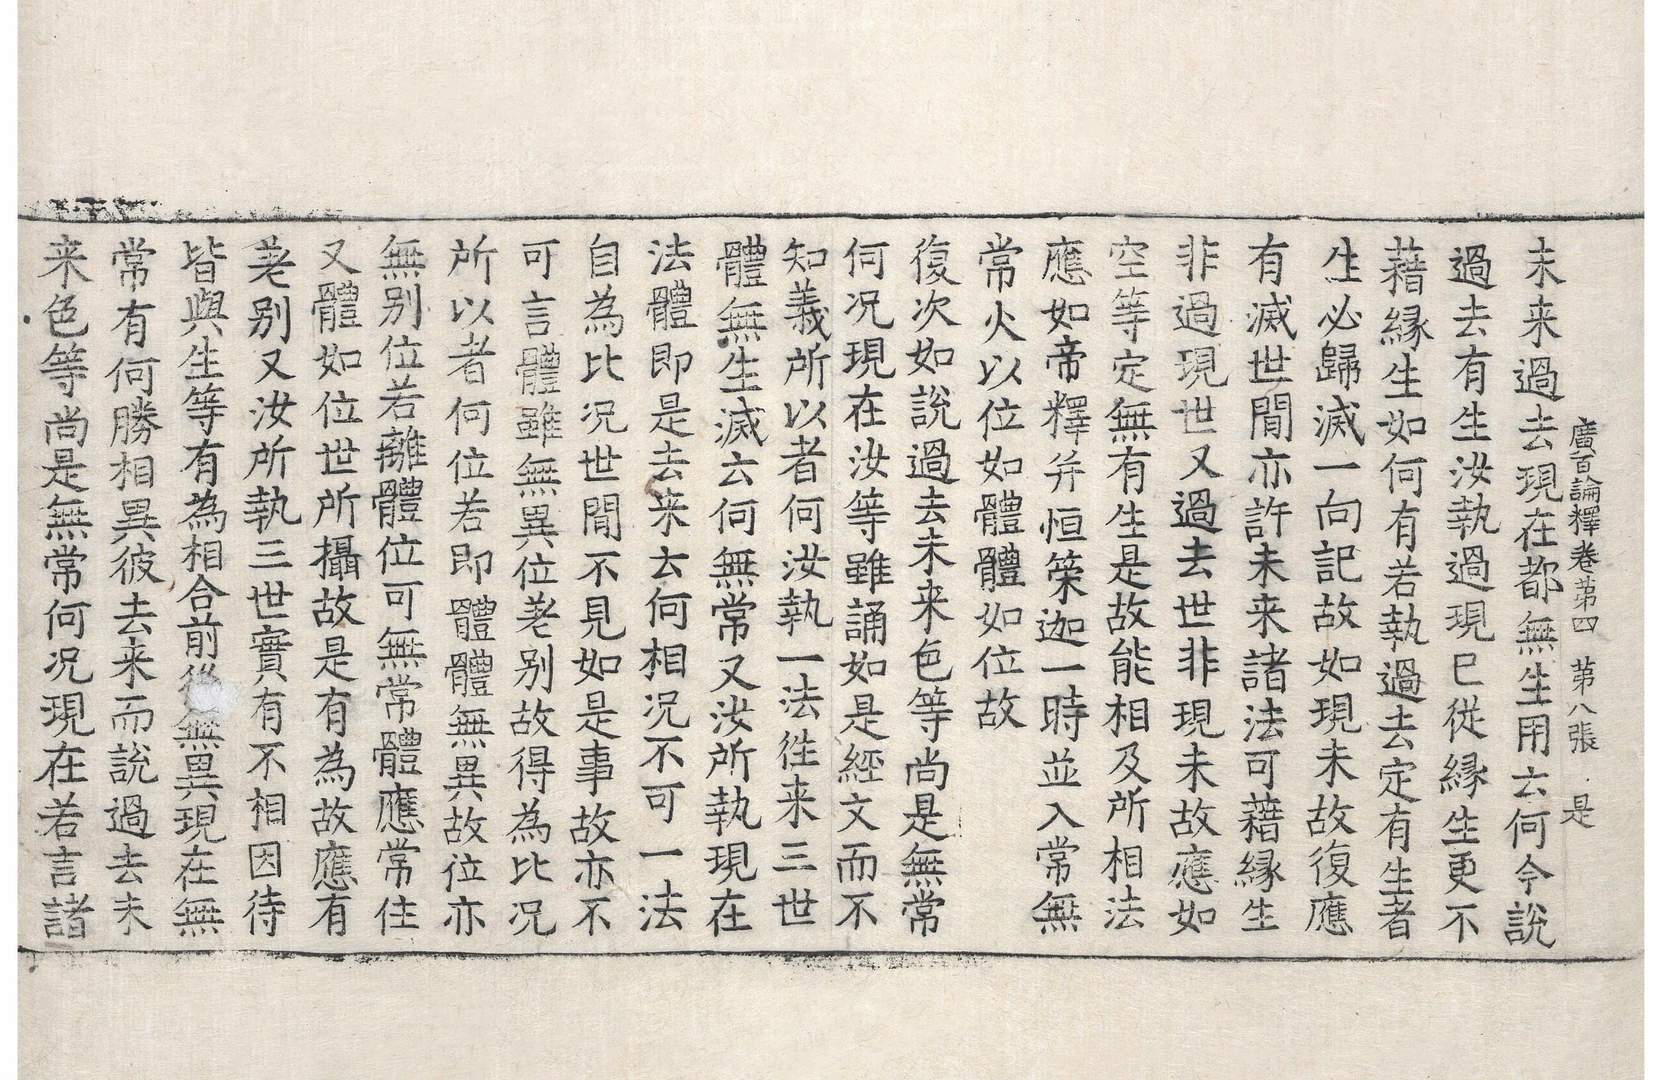 廣百論釋卷苐四 苐八張 是
未来過去現在都無生用云何今說
過去有生汝執過現已從緣生更不
藉緣生如何有若執過去定有生者
生必歸滅一向記故如現未故復應
有滅世間亦許未来諸法可藉緣生
非過現世又過去世非現未故應如
空等定無有生是故能相及所相法
應如帝釋并恒策迦一時並入常無
常火以位如體體如位故
復次如說過去未来色等尚是無常
何况現在汝等雖誦如是經文而不
知義所以者何汝執一法徃来三世
體無生滅云何無常又汝所執現在
法體即是去来云何相况不可一法
自為比况世間不見如是事故亦不
可言體雖無異位差别故得為比况
所以者何位若即體體無異故位亦
無别位若離體位可無常體應常住
又體如位世所攝故是有為故應有
差别又汝所執三世實有不相因待
皆與生等有為相合前後無異現在無
常有何勝相異彼去来而說過去未
来色等尚是無常何况現在若言諸